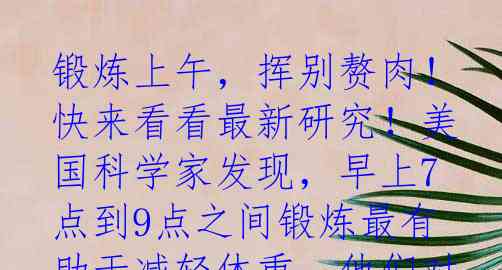 锻炼上午，挥别赘肉！
快来看看最新研究！美
国科学家发现，早上7
点到9点之间锻炼最有
助于减轻体重。他们对